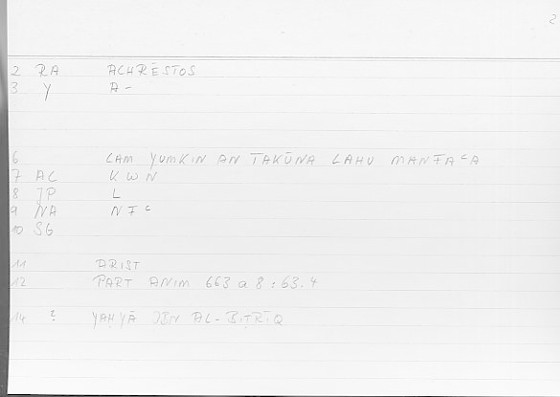 2
2 RA ACHRĒSTOS
3 Y A-
6 LAM YUMKIN AN TAKŪNA LAHU MANFAᶜA
7 AL KWN
8 JP L
9 NA NFᶜ
10 SG
11 ARIST
12 PART ANIM 663 a 8 : 63.4
14 2 YAḤYĀ IBN AL-BIṬRĪQ